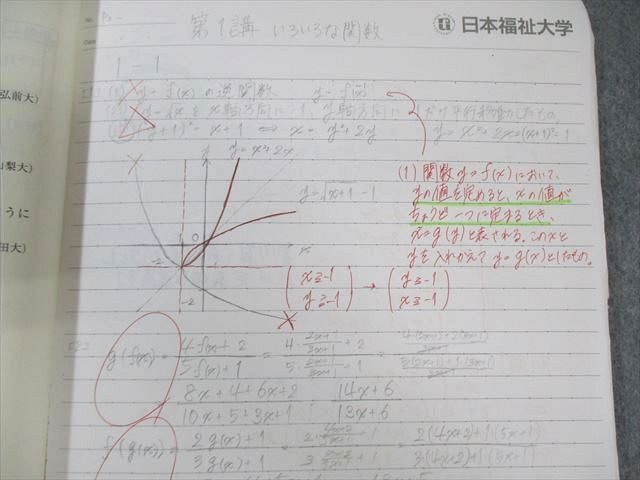 No. P2-
第1講 いろいろな関数
日本福祉大学
Date
1-1
弘前大)
(1) y=f(x)の逆関数
y=√xをx軸方向に-1, y軸方向に
だけ平行移動したもの
(y+1)²=x+1 ⇔ x=y²+2y
y=x²+2x=(x+1)²-1
y=x²+2x
山梨大)
うに
田大)
y=√x+1 -1
(1) 関数y=f(x)において、
yの値を定めると、xの値が
ちょうど一つに定まるとき、
x=g(y)と表される。このxと
yを入れかえてy=g(x)としたもの。
y
0
1
x
-2
-2
(x≧-1 y≧-1) → (y≧-1 x≧-1)
g(f(x)) = 4f(x)+2 / 5f(x)+1 = 4・2x+1/3x+1+2 / 5・2x+1/3x+1+1 = 4(2x+1)+2(3x+1) / 5(2x+1)+1(3x+1)
8x+4+6x+2 / 10x+5+3x+1 = 14x+6 / 13x+6
f(g(x)) = 2g(x)+1 / 3g(x)+1 = 2・4x+2/5x+1+1 / 3・4x+2/5x+1+1 = 2(4x+2)+1・(5x+1) / 3(4x+2)+1・(5x+1)